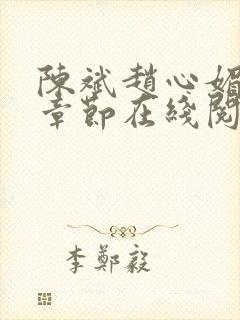 陳斌趙心媚
章節在綫閱
李鄭毅